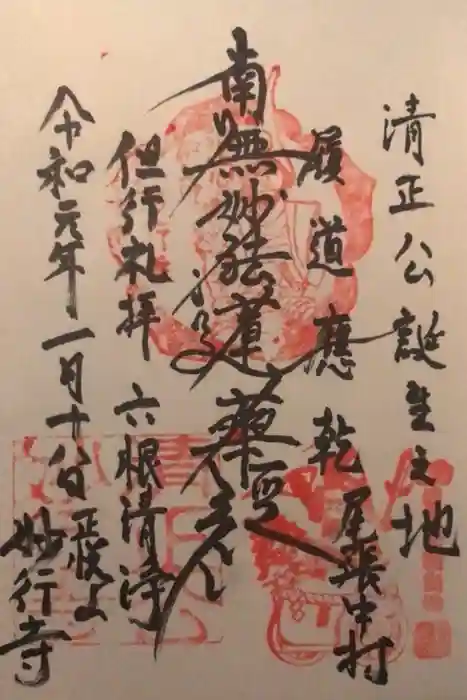 清正公誕生之地
履道應乾 尾張中村
南無妙法蓮華経
但行礼拝 六根清浄
令和元年一月十八日 正悦山
妙行寺